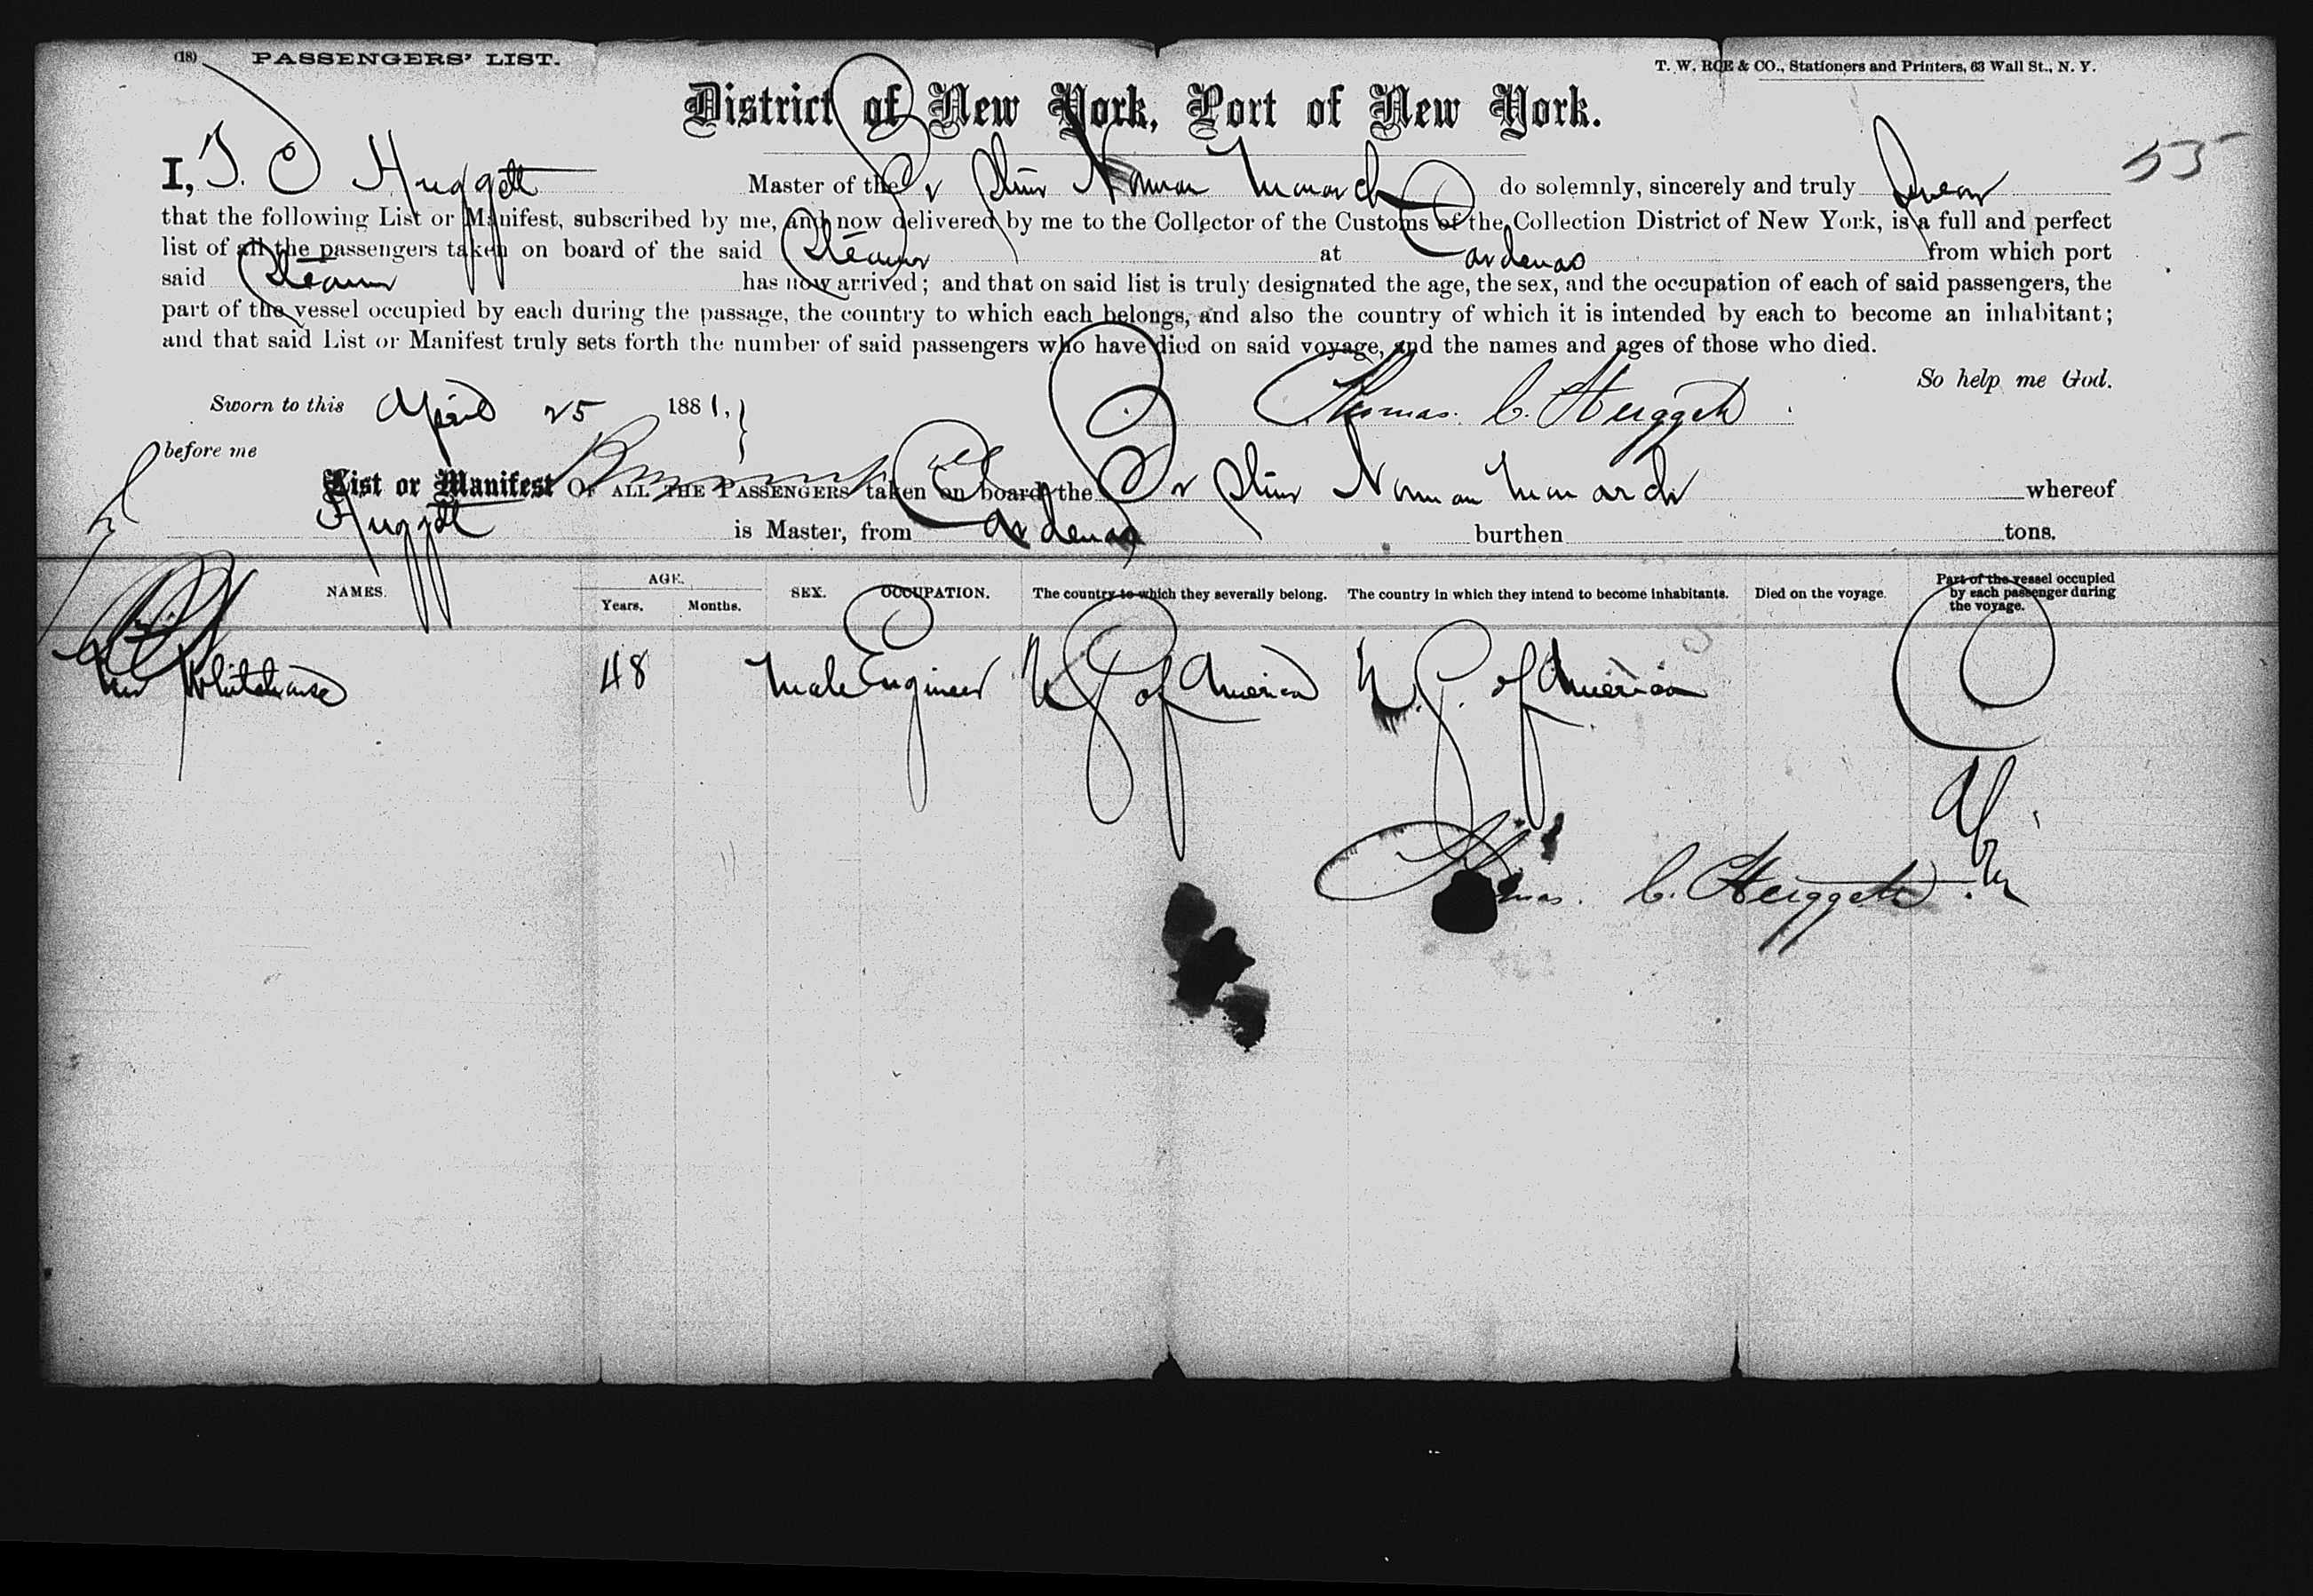 (18) PASSENGERS' LIST.
T. W. ROE & CO., Stationers and Printers, 63 Wall St., N. Y.
District of New York, Port of New York.
55
I, T. C Huggett Master of the Br Stmr Norman Monarch do solemnly, sincerely and truly Swear
that the following List or Manifest, subscribed by me, and now delivered by me to the Collector of the Customs of the Collection District of New York, is a full and perfect
list of all the passengers taken on board of the said Steamer at Cardenas from which port
said Steamer has now arrived; and that on said list is truly designated the age, the sex, and the occupation of each of said passengers, the
part of the vessel occupied by each during the passage, the country to which each belongs, and also the country of which it is intended by each to become an inhabitant;
and that said List or Manifest truly sets forth the number of said passengers who have died on said voyage, and the names and ages of those who died.
So help me God.
Sworn to this April 25 1881, } Thomas. C. Huggett
before me
List or Manifest OF ALL THE PASSENGERS taken on board the Br Stmr Norman Monarch whereof
Huggett is Master, from Cardenas burthen tons.
NAMES. AGE. Years. Months. SEX. OCCUPATION. The country to which they severally belong. The country in which they intend to become inhabitants. Died on the voyage. Part of the vessel occupied by each passenger during the voyage.
Whitehouse 48 Male Engineer U S of America U. S. of America C
Thomas. C. Huggett